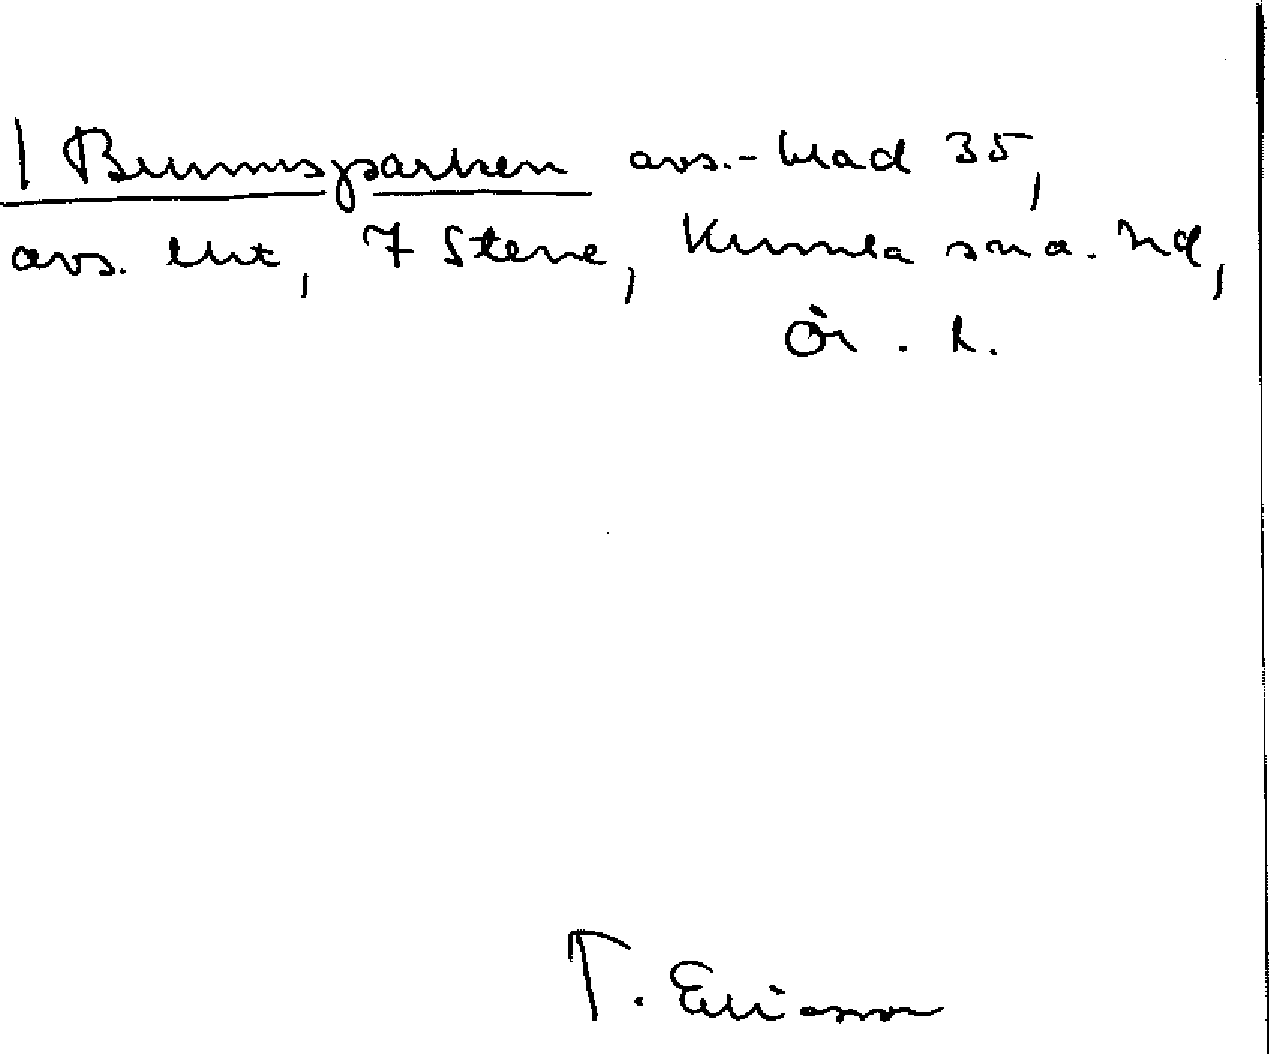 | Brunnsparken avs.-blad 35,
avs. utr, 7 Stene, Kumla sn a. hd,
Ör. l.
T. Ericsson